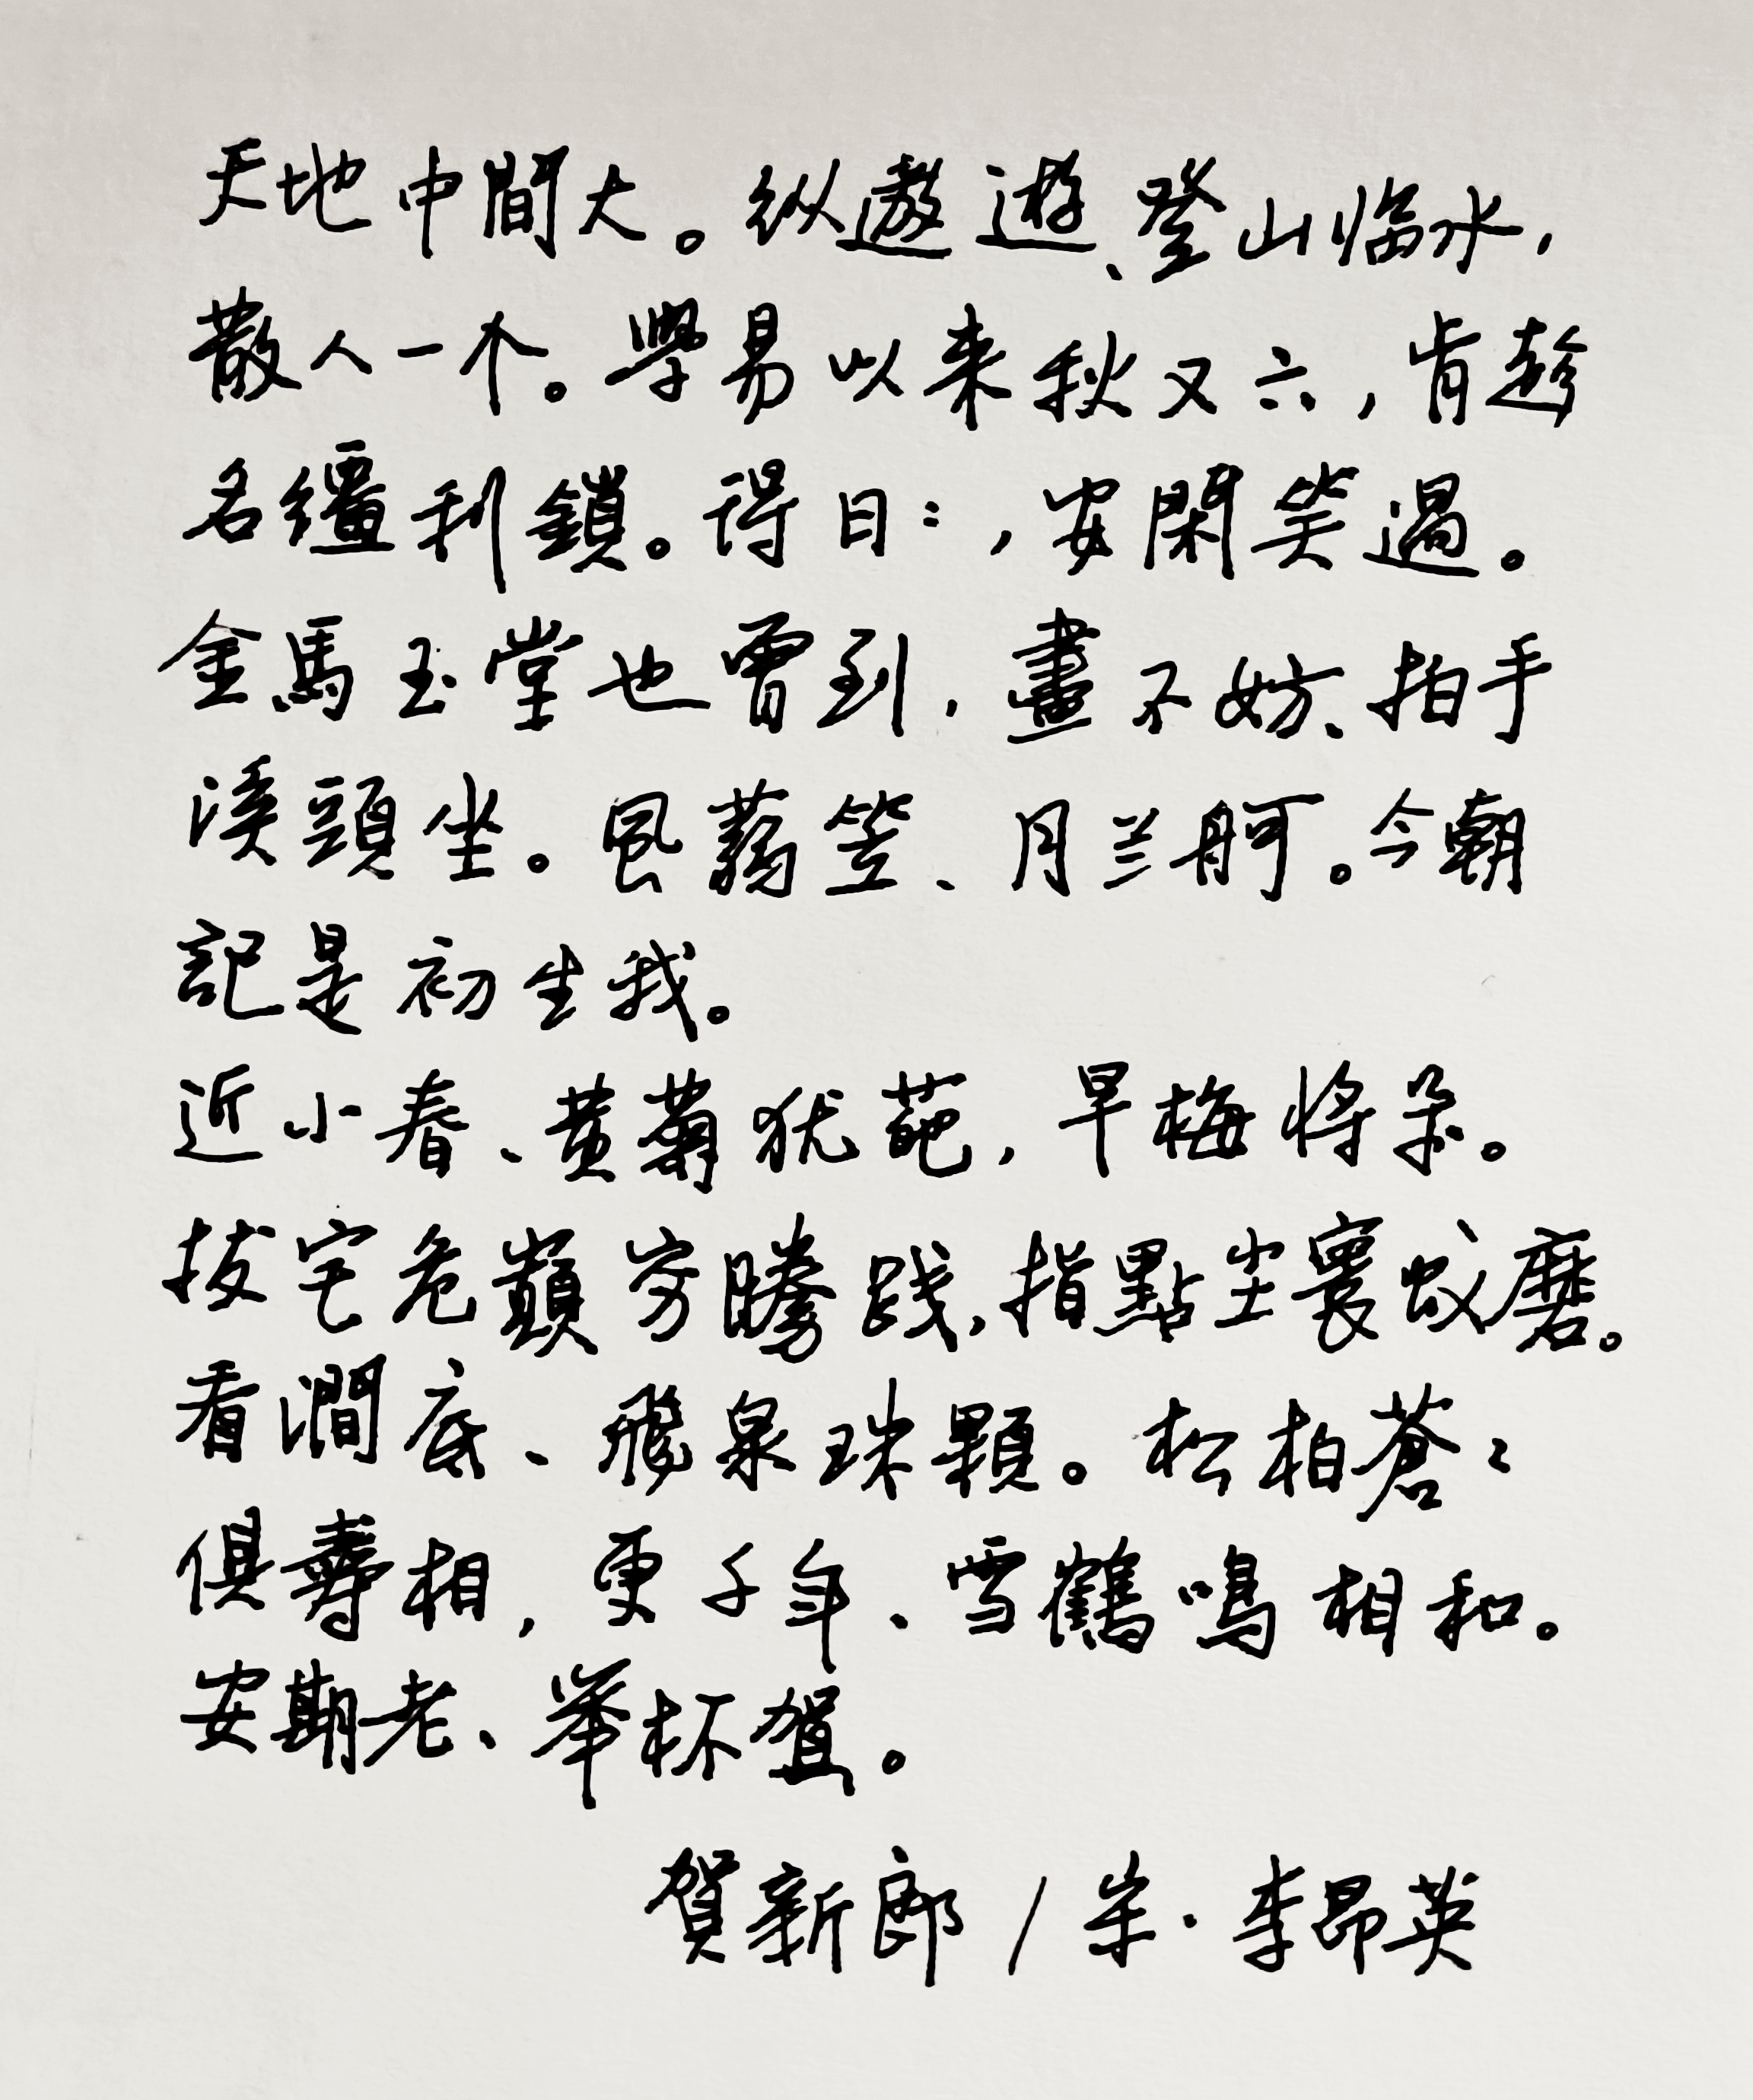 天地中間大。纵遨遊、登山临水，
散人一个。學易以来秋又六，肯趁
名繮利鎖。得日〻，安閑笑過。
金馬玉堂也曾到，盡不妨、拍手
溪頭坐。風蒻笠、月兰舸。今朝
記是初生我。
近小春、黄菊犹葩，早梅将朵。
拔宅危巔穷勝践，指點尘裏蚁磨。
看澗底、飛泉珠顆。松柏蒼〻
俱壽相，更千年、雪鶴鳴相和。
安期老、举杯賀。
賀新郎/宋·李昂英